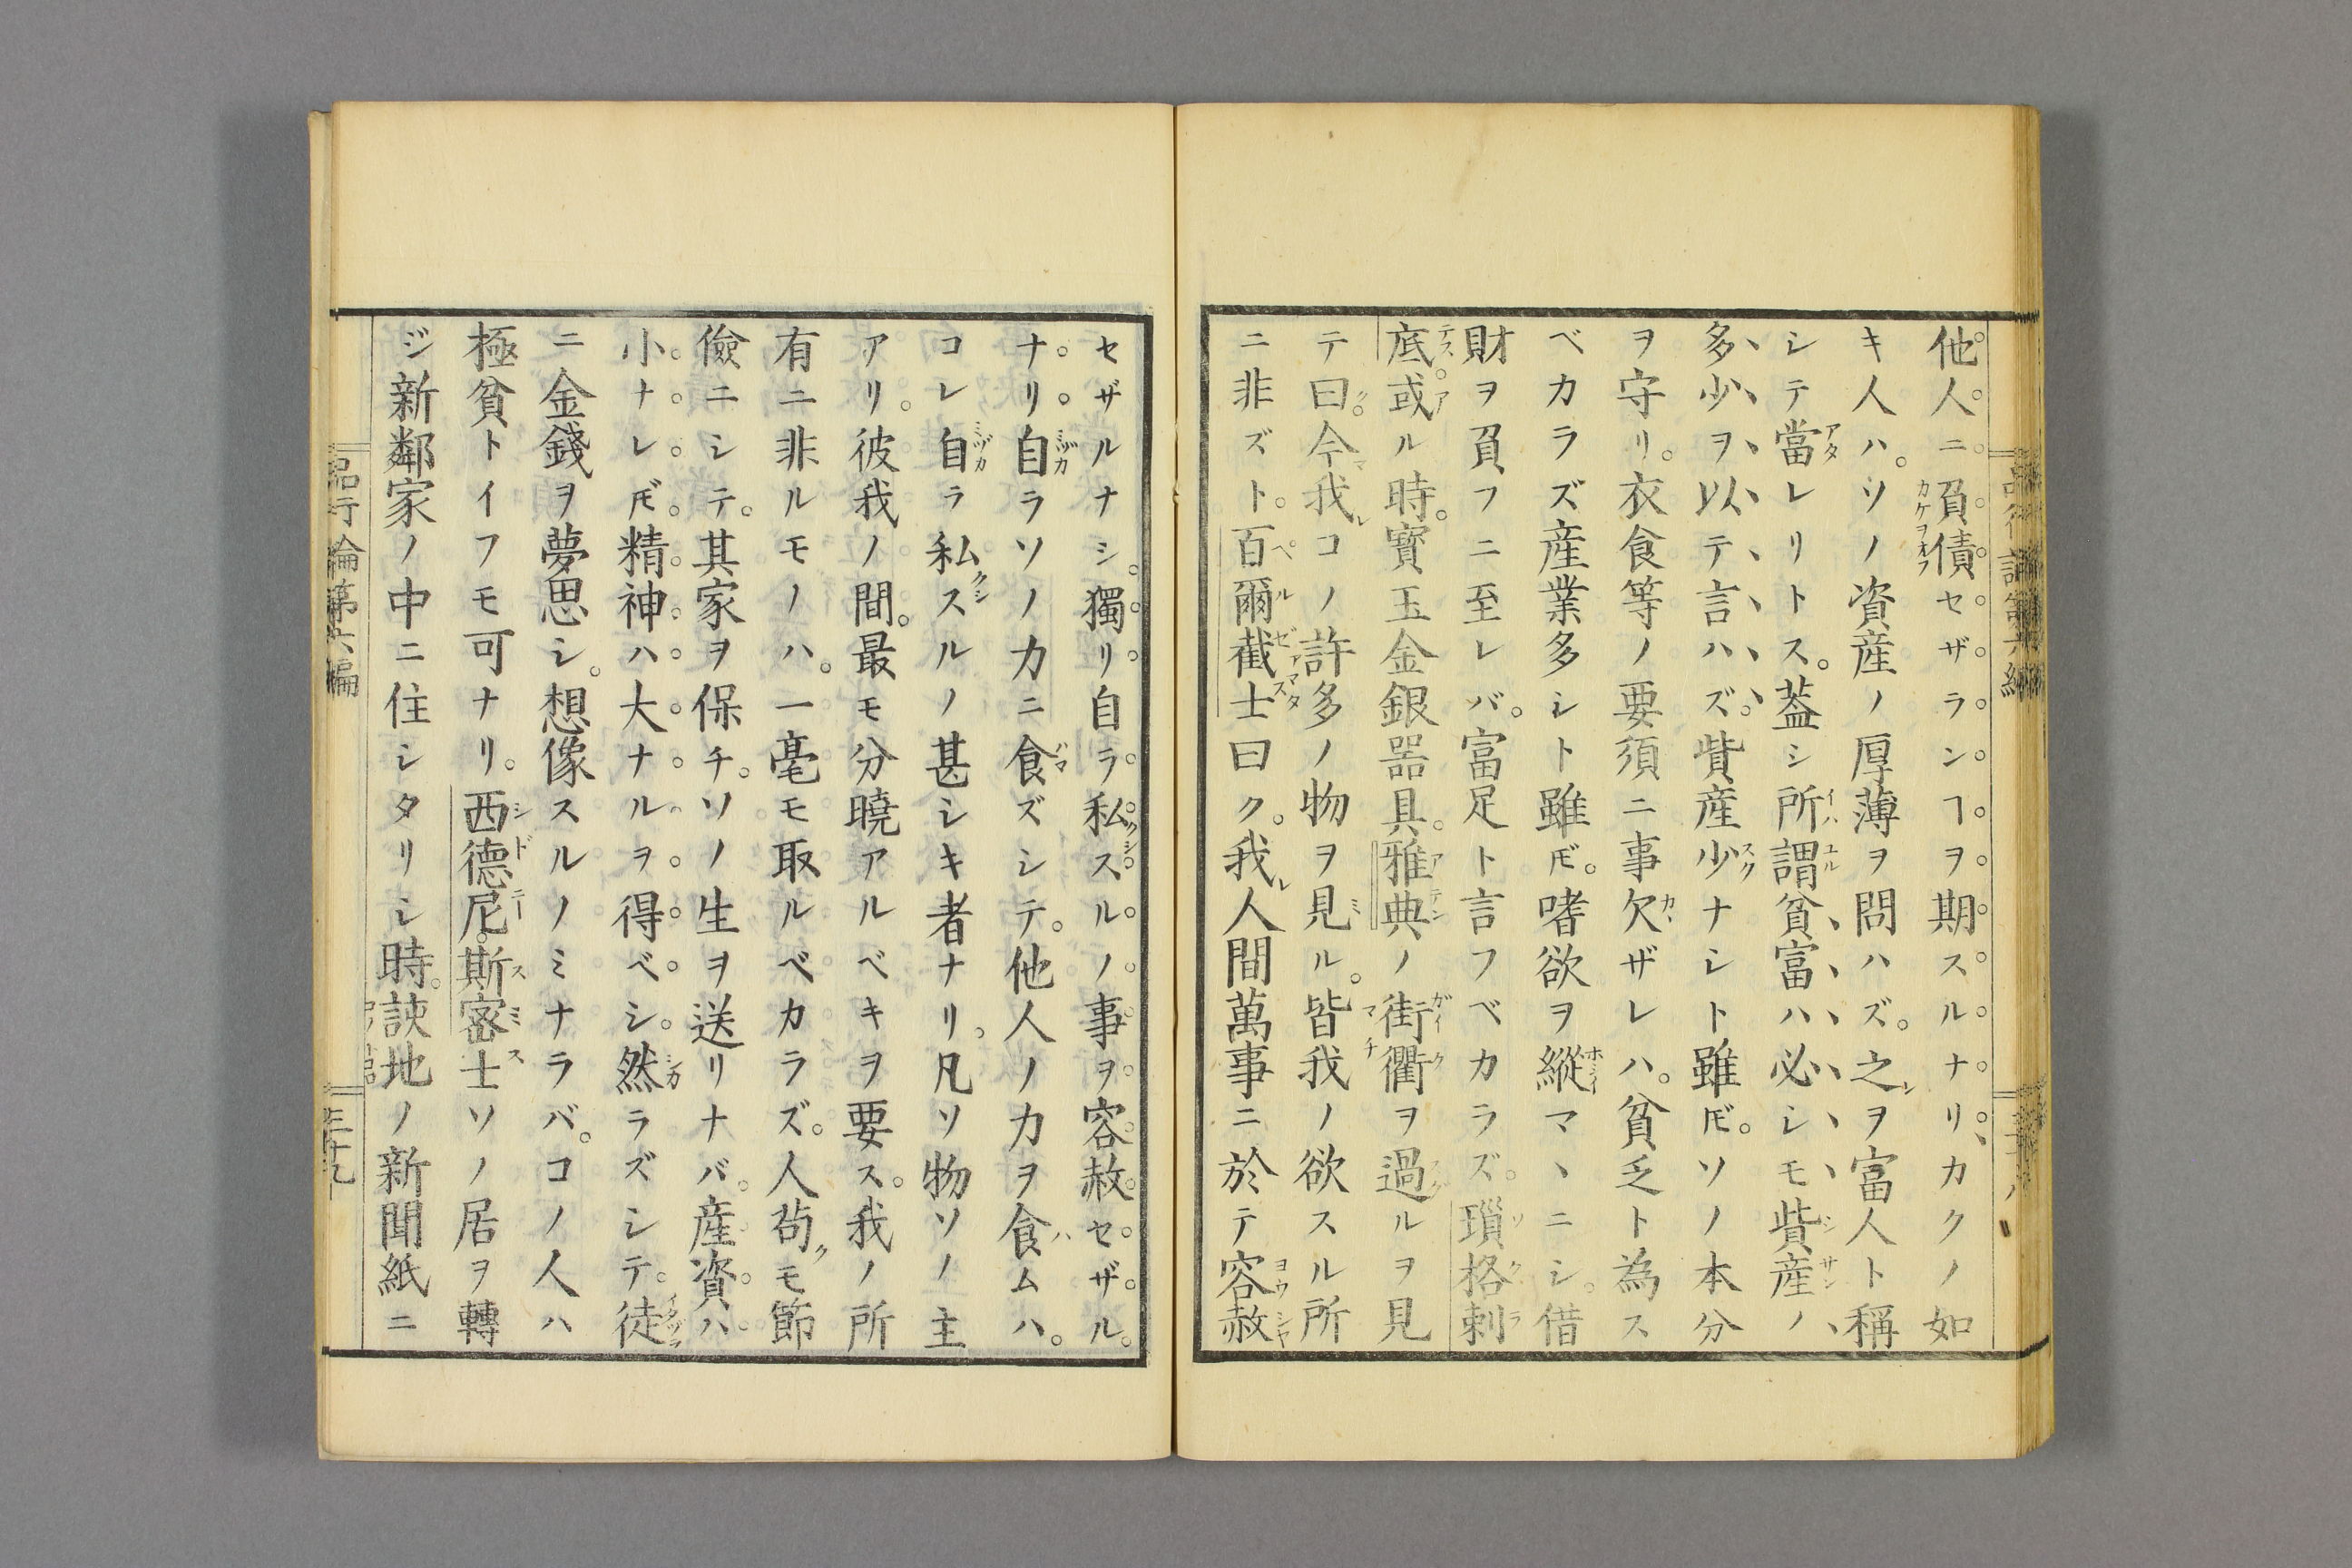 他人ニ負債セザランヿヲ期スルナリ、カクノ如
キ人ハ。ソノ資産ノ厚薄ヲ問ハズ。之ヲ富人ト稱
シテ當レリトス。蓋シ所謂貧富ハ必シモ貲産ノ
多少ヲ以テ言ハズ。貲産少ナシト雖𪜈。ソノ本分
ヲ守リ。衣食等ノ要須ニ事欠ザレハ。貧乏ト為ス
ベカラズ産業多シト雖𪜈。嗜欲ヲ縱マヽニシ。借
財ヲ負フニ至レバ。富足ト言フベカラズ。瑣格剌
底。或ル時。寳玉金銀噐具。雅典ノ街衢ヲ過ルヲ見
テ曰。今我コノ許多ノ物ヲ見ル。皆我ノ欲スル所
ニ非ズト。百爾截士曰ク。我人間萬事ニ於テ容赦
セザルナシ。獨リ自ラ私スルノ事ヲ容赦セザル。
ナリ。自ラソノ力ニ食ズシテ。他人ノ力ヲ食ムハ。
コレ自ラ私スルノ甚シキ者ナリ。凡ソ物ソノ主
アリ。彼我ノ間。最モ分曉アルベキヲ要ス。我ノ所
有ニ非ルモノハ。一毫モ取ルベカラズ。人苟モ節
儉ニシテ。其家ヲ保チ。ソノ生ヲ送リナバ。産資ハ
小ナレ𪜈。精神ハ大ナルヲ得ベシ。然ラズシテ。徒
ニ金錢ヲ夢思シ。想像スルノミナラバ。コノ人ハ
極貧トイフモ可ナリ。西德尼。斯密士ソノ居ヲ轉
ジ新鄰家ノ中ニ住シタリシ時。該地ノ新聞紙ニ
品行論第六編
三十九